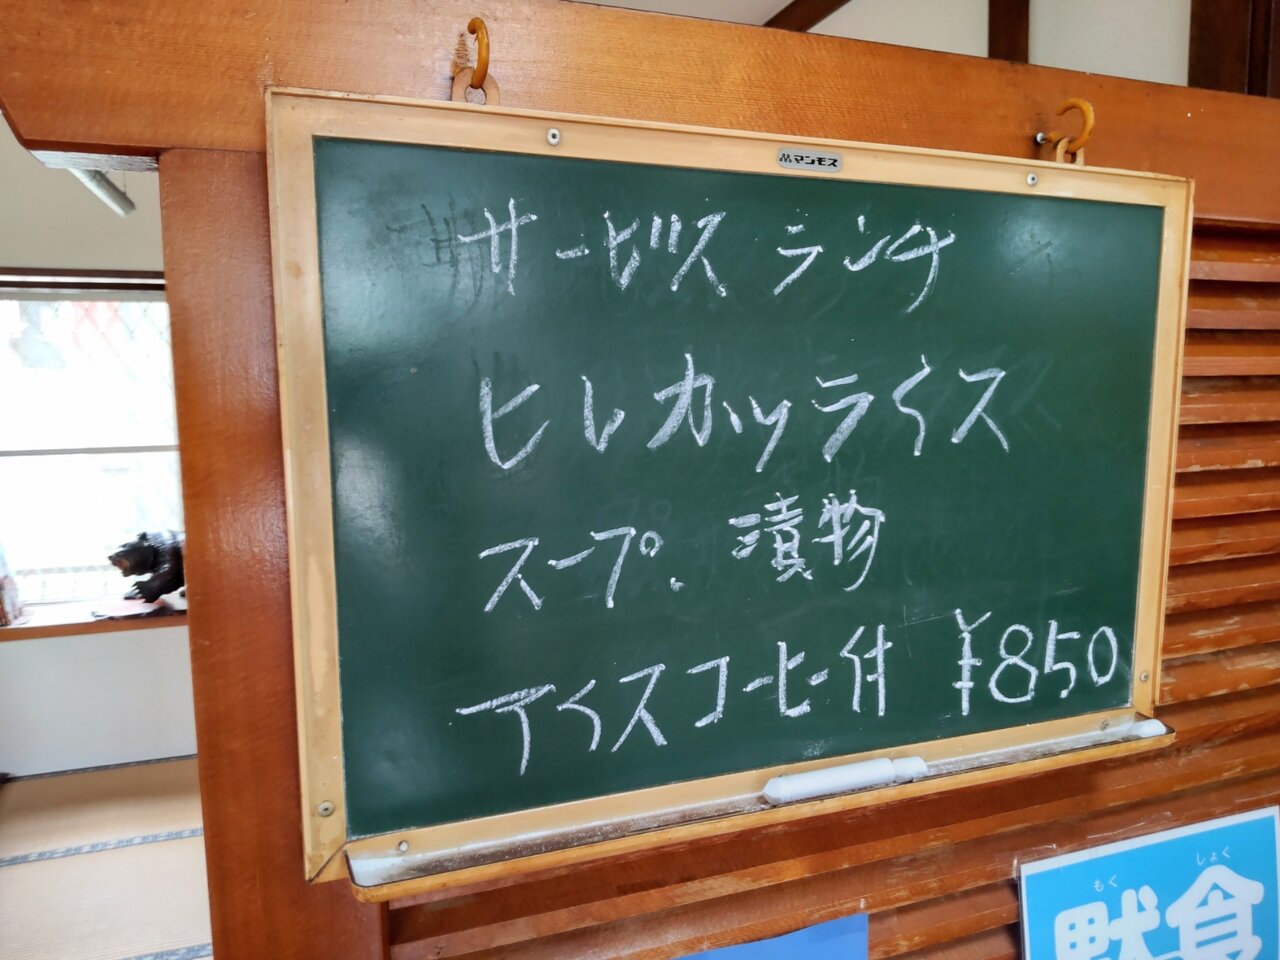 マンモス
サービスランチ
ヒレカツライス
スープ、漬物
アイスコーヒー付 ¥850
もく しょく
黙食